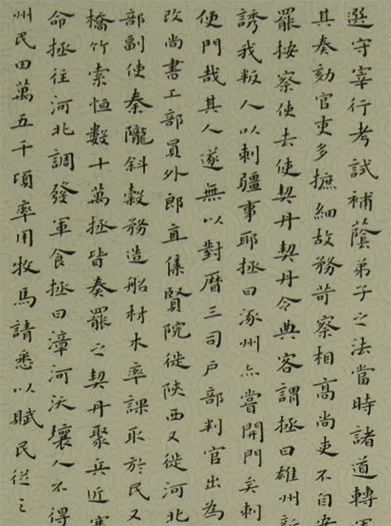 選守宰行考試補蔭弟子之法當時諸道轉
其奏劾官吏多摭細故務苛察相高尚吏不自安
罷按察使去使契丹契丹令典客謂拯曰雄州新
誘我叛人以刺疆事耶拯曰涿州亦嘗開門矣刺
使門哉其人遂無以對曆三司戶部判官出為
改尚書工部員外郎直集賢院徙陝西又徙河北
部副使秦隴斜穀務造船材木率課取於民又
橋竹索恒數十萬拯皆奏罷之契丹聚兵近塞
命拯往河北調發軍食拯曰漳河沃壤人不得
州民田萬五千頃率用牧馬請悉以賦民從之